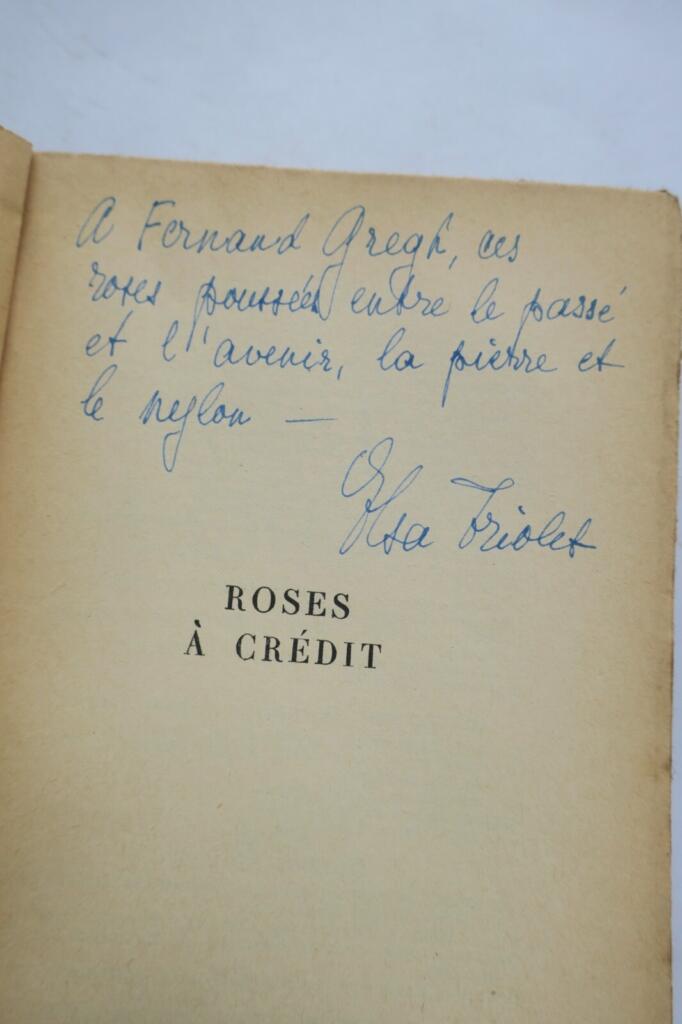 A Fernand Gregh, ces
roses poussées entre le passé
et l'avenir, la pierre et
le nylon —
Elsa Triolet
ROSES
À CRÉDIT